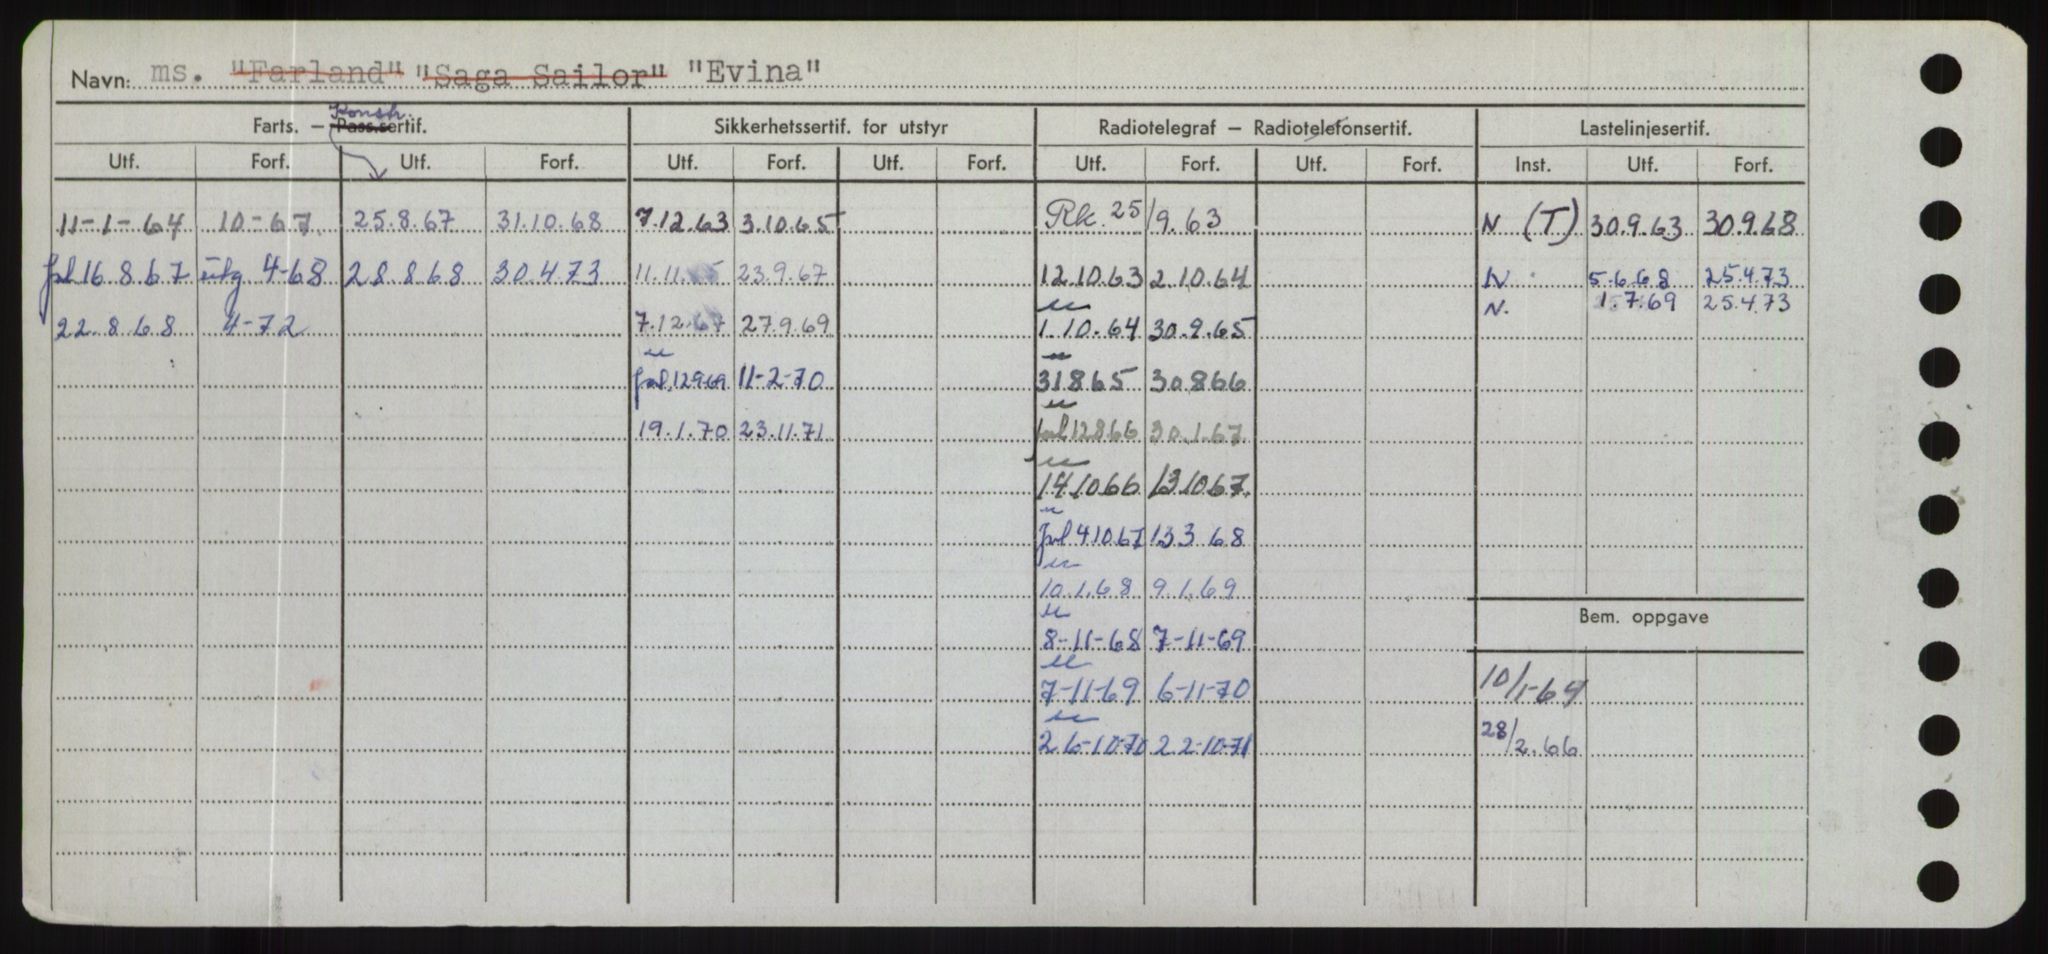 Navn: ms. "Farland" "Saga Sailor" "Evina"
Konstr.
Farts. — Pass.sertif. Sikkerhetssertif. for utstyr Radiotelegraf — Radiotelefonsertif. Lastelinjesertif.
Utf. Forf. Utf. Forf. Utf. Forf. Utf. Forf. Utf. Forf. Utf. Forf. Inst. Utf. Forf.
11-1-64 10-67 25.8.67 31.10.68 7.12.63 3.10.65 Rk. 25/9.63 N (T) 30.9.63 30.9.68
forl 16.8.67 utg 4-68 28.8.68 30.4.73 11.11.65 23.9.67 12.10.63 2.10.64 N. 5.6.68 25.4.73
N. 1.7.69 25.4.73
22.8.68 4-72 7.12.67 27.9.69 1.10.64 30.9.65
forl. 12.9.69 11-2-70 31.8.65 30.8.66
19.1.70 23.11.71 forl 12.8.66 30.1.67
14.10.66 13.10.67
forl 4.10.67 13.3.68
10.1.68 9.1.69
8-11-68 7-11-69
Bem. oppgave
7-11-69 6-11-70 10/1-64
26-10-70 22-10-71 28/2.66